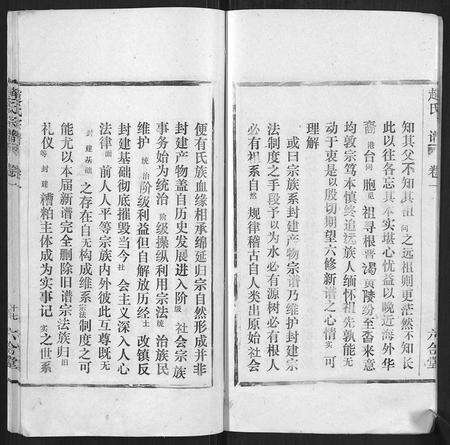 趙氏宗譜 卷一 六合堂
知其父不知其祖 问之远祖则更茫然不知长
此以往各忘其本实堪心忧益以晚近海外华
裔港台同胞见祖寻根晋谒黄陵纷至沓来意
均敦宗笃本慎终追远族人缅怀祖先孰能无
动于衷是以殷切期望六修新谱之心情实可
理解
或曰宗族系封建产物宗谱乃维护封建宗
法制度之手段予以为水必有源树必有根人
必有祖系自然规律稽古自人类出原始社会
便有氏族血缘相承绵延归宗自然形成并非
封建产物盖自历史发展进入阶级社会宗族
事务始为统治阶级操纵利用宗法统治族民
维护统治阶级利益但自解放历经土改镇反
封建基础彻底摧毁当今社会主义深入人心
法律面前人人平等宗族内外彼此互尊既无
封建基础之存在自无构成维系宗法制度之可
能尤以本届新谱完全删除旧谱宗法族归旧
礼仪等封建糟粕主体成为实事记实之世系
趙氏宗譜 卷一 六合堂